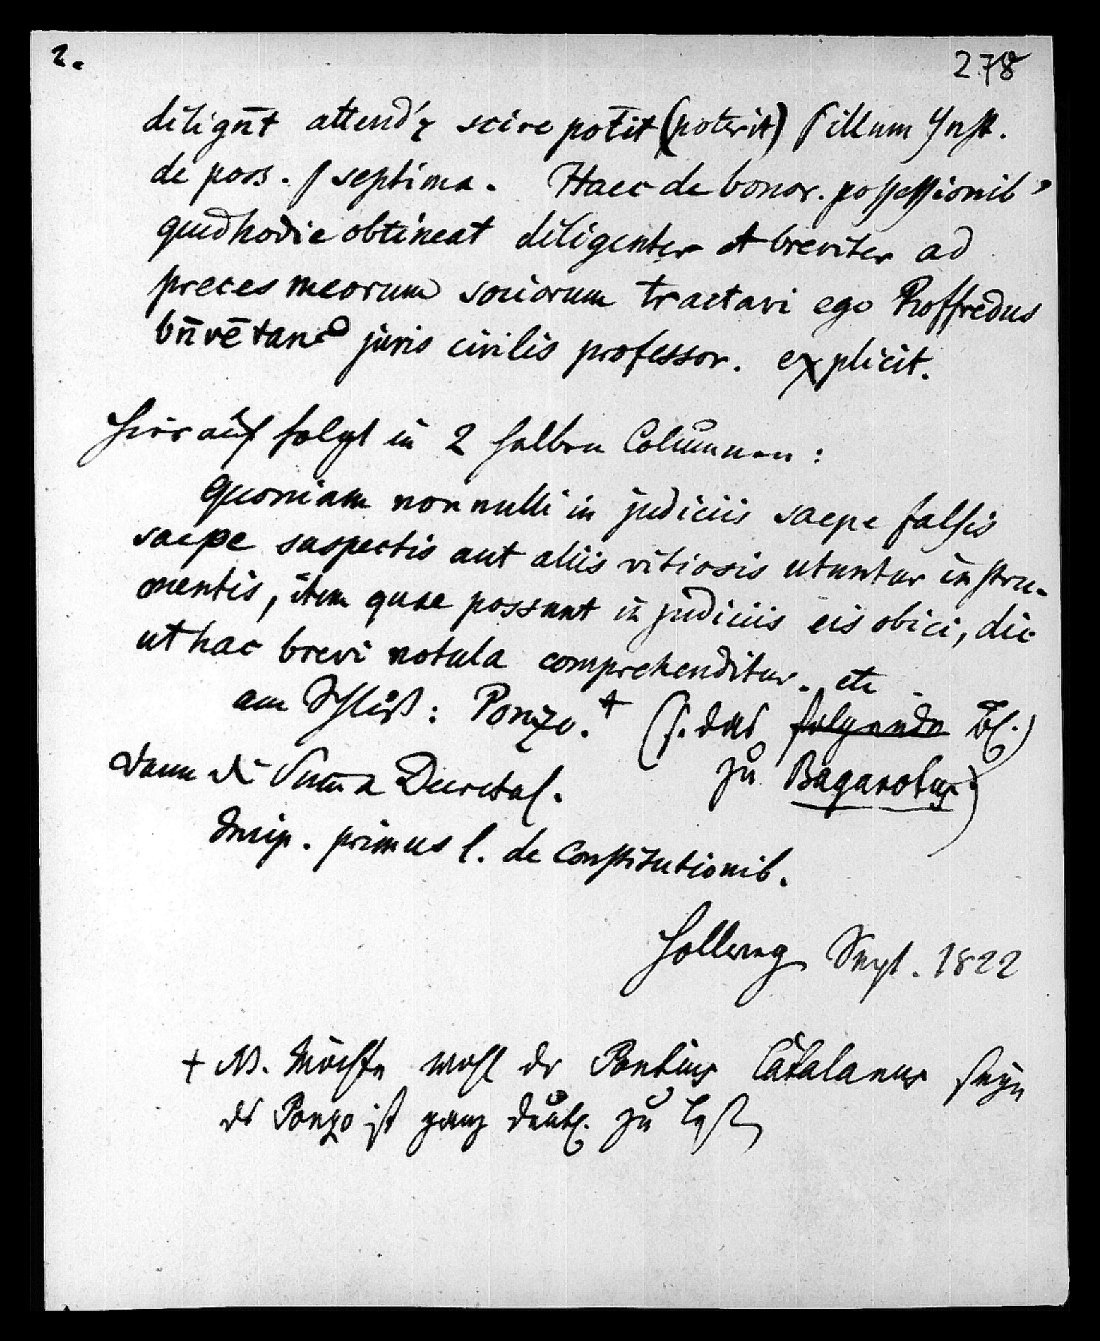 2.
278
diligñt attend'ʒ scire potit (poterit) § illum Inst.
de poss. § septima. Haec de bonor. possessionib'
quid hodie obtineat diligenter et breviter ad
preces meorum sociorum tractavi ego Roffredus
bñvētanꝰ juris civilis professor. explicit.
Hierauf folgt in 2 halben Columnen:
Quoniam nonnulli in judiciis saepe falsis
saepe suspectis aut aliis vitiosis utuntur instru-
mentis, item quae possunt in judiciis eis obici, dic
ut hac brevi notula comprehenditur. etc.
am Schluß: Ponzo. + (s. das folgende Bl.)
dann die Sum̄a Decretal. zu Bagarotus)
Incip. primus l. de Constitutionib.
Hollweg Sept. 1822
+ NB. Möchte wohl der Pontius Catalanus seyn
der Ponzo ist ganz deutl. zu